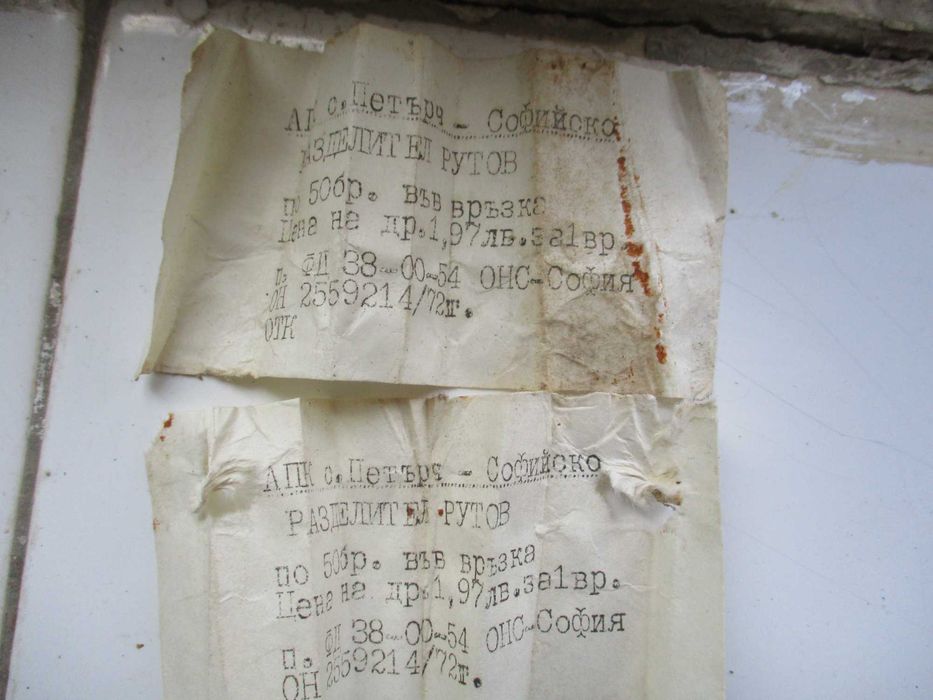 АПК с.Петърч - Софийско
РАЗДЕЛИТЕЛ РУТОВ
по 50бр. във връзка
Цена на др.1,97лв.за1вр.
п. ФЦ 38-00-54 ОНС-София
ОН 2559214/72г.
ОТК
АПК с.Петърч - Софийско
РАЗДЕЛИТЕЛ РУТОВ
по 50бр. във връзка
Цена на др.1,97лв.за1вр.
п. ФЦ 38-00-54 ОНС-София
ОН 2559214/72г.